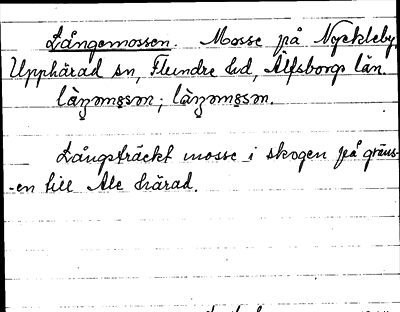 Långemossen. Mosse på Nyckleby,
Upphärad sn, Flundre hd, Älfsborgs län.
Långsträckt mosse i skogen på gräns-
-en till Ale härad.